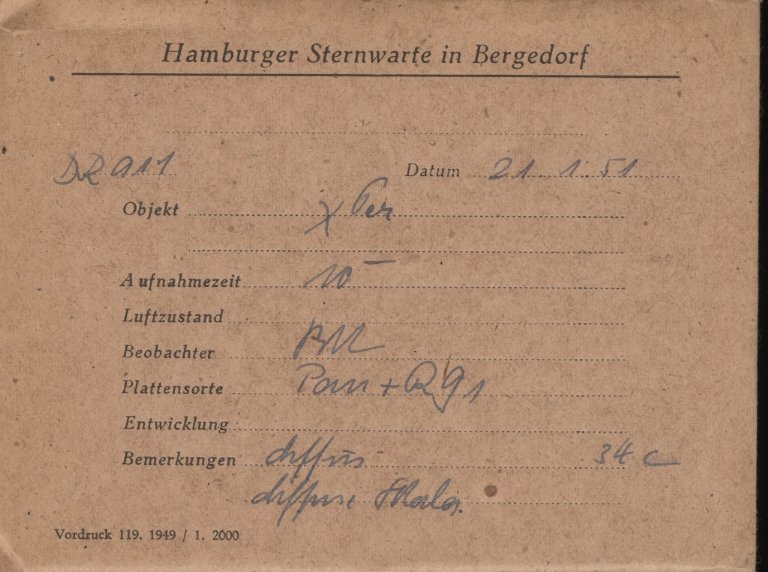 Hamburger Sternwarte in Bergedorf
DR 911 Datum 21. 1. 51
Objekt χ Per
Aufnahmezeit 10
Luftzustand
Beobachter
Plattensorte Pan + R g 1
Entwicklung
Bemerkungen diffus 34 c
diffuse Skala.
Vordruck 119. 1949 / 1. 2000